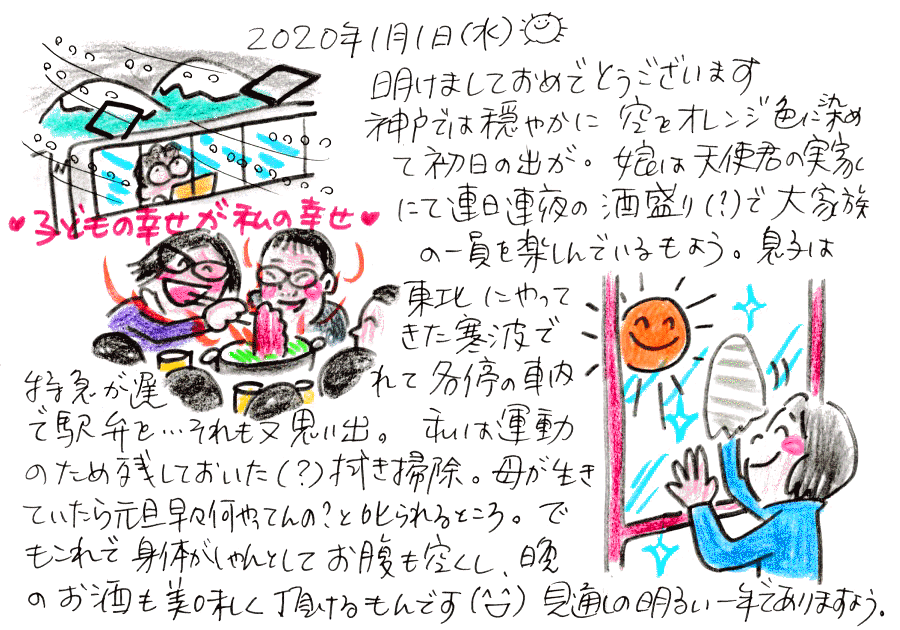 2020年1月1日(水)
明けましておめでとうございます
神戸では穏やかに 空をオレンジ色に染め
て初日の出が。娘は天使君の実家
にて連日連夜の酒盛り(?)で大家族
の一員を楽しんでいるもよう。息子は
♥子どもの幸せが私の幸せ♥
東北にやって
きた寒波で
特急が遅れて各停の車内
で駅弁を…それも又思い出。 私は運動
のため残しておいた(?)拭き掃除。母が生き
ていたら元旦早々何やってんの?と叱られるところ。で
もこれで身体がしゃんとしてお腹も空くし、晩
のお酒も美味しく頂けるもんです(^^) 見通しの明るい一年でありますよう.